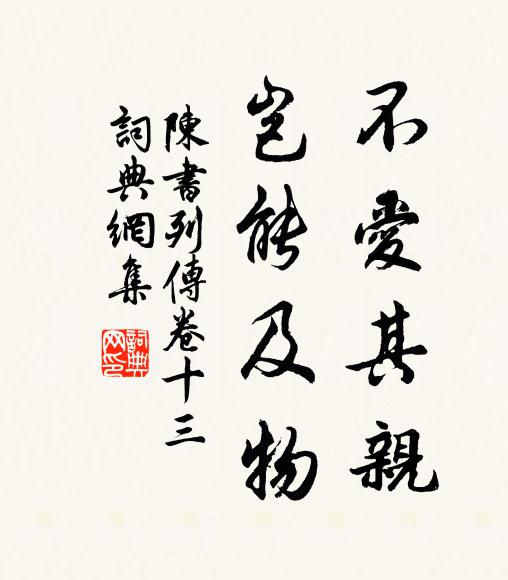 不愛其親
豈能及物
陳書列傳卷十三
詞典網集
詞典
网印